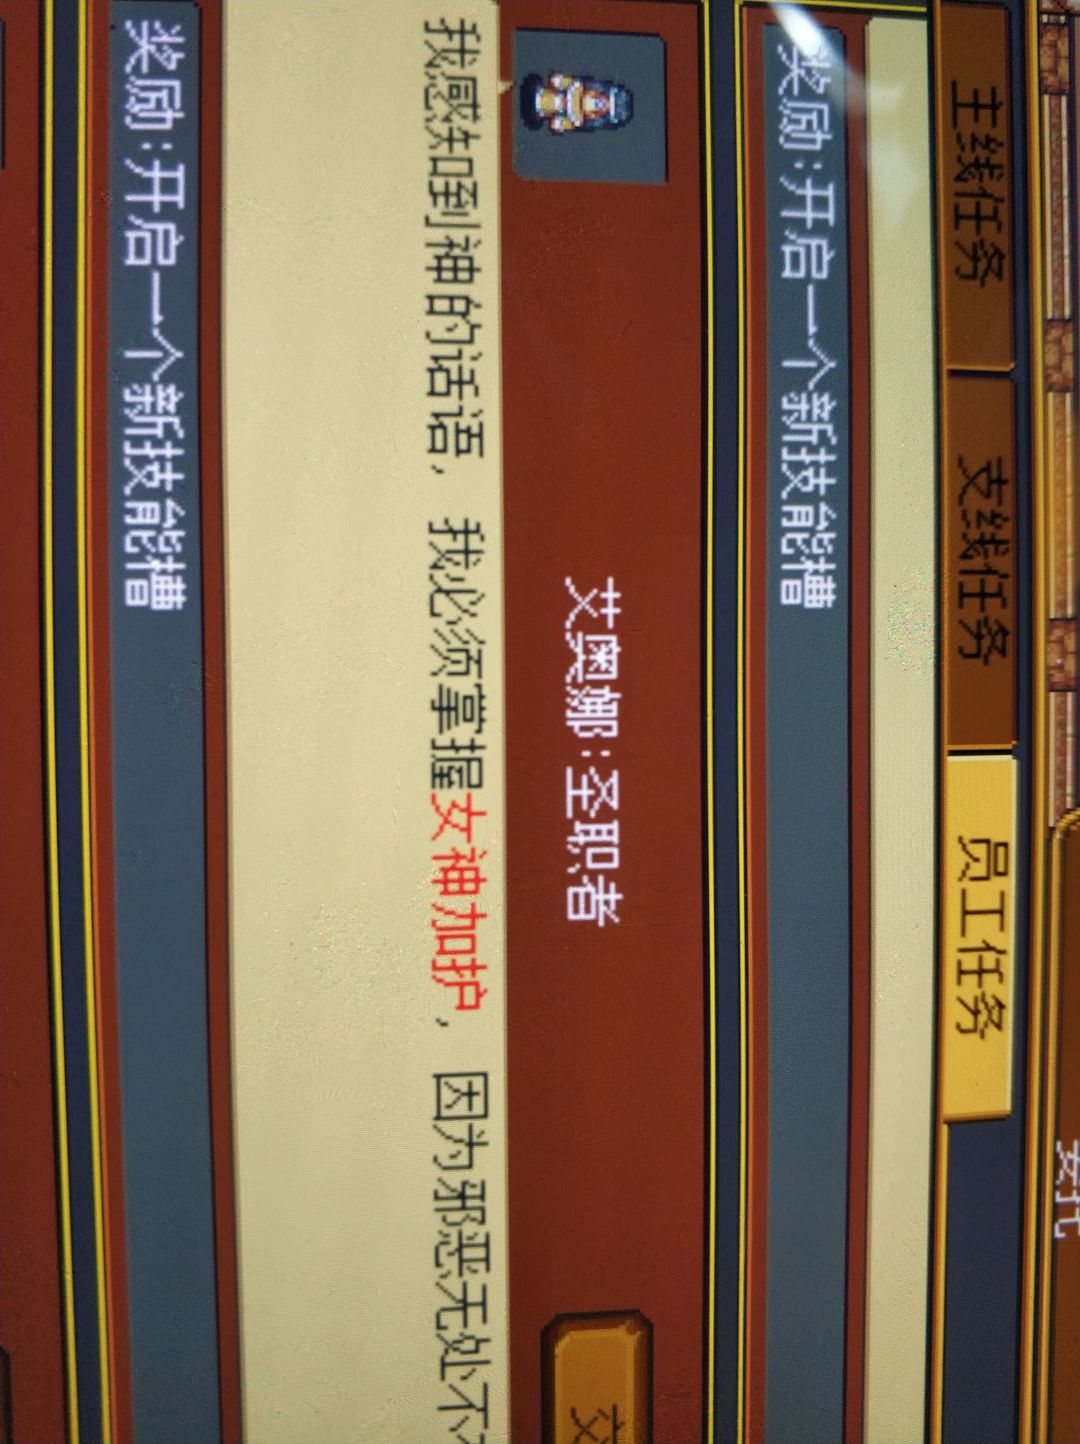 委托
主线任务 支线任务 员工任务
奖励:开启一个新技能槽
艾奥娜:圣职者
交
我感知到神的话语，我必须掌握女神加护，因为邪恶无处不
奖励:开启一个新技能槽